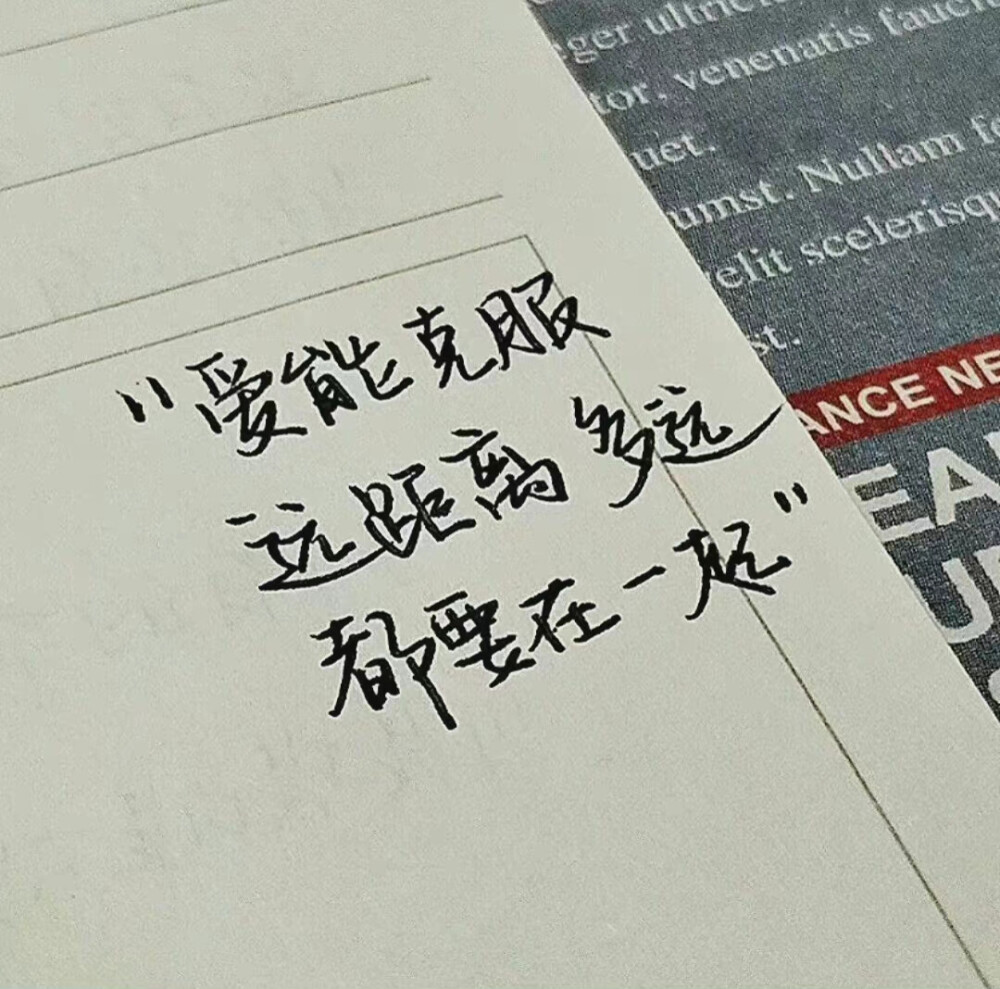 "爱能克服
远距离多远
都要在一起"
ger ultric
tor, venenatis fauc
uet.
umst. Nullam fe
elit scelerisqu
st.
ANCE NE
EA